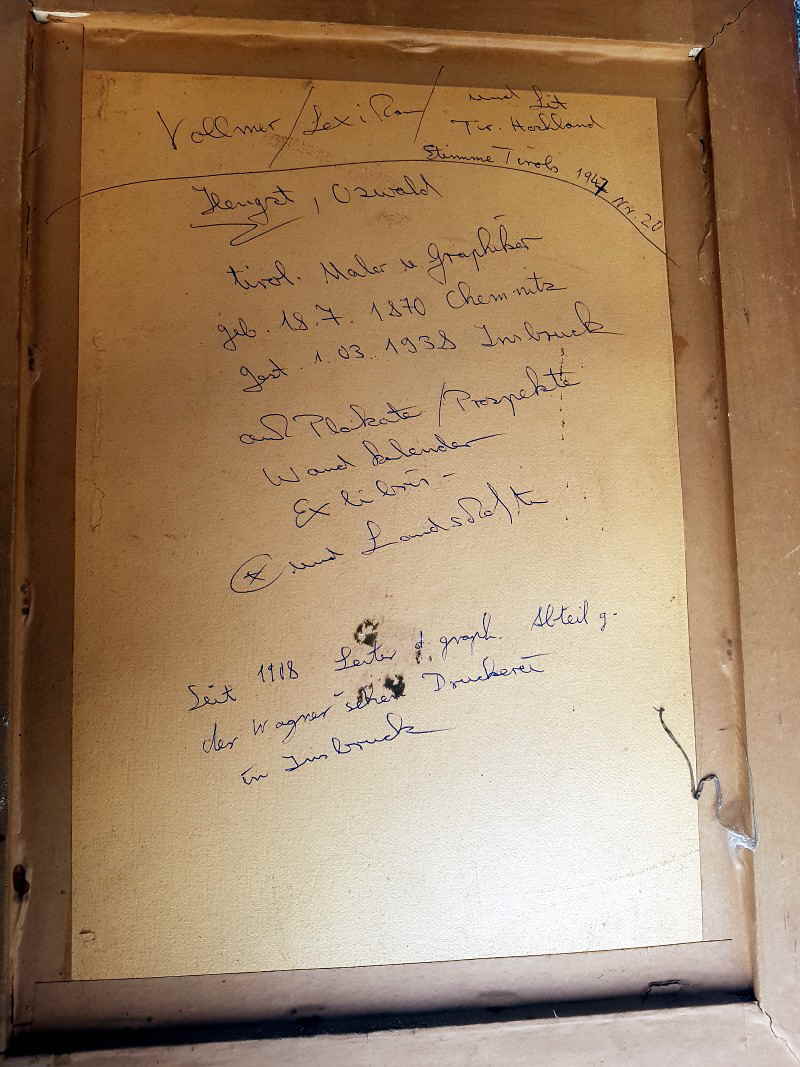 Vollmer / Lexikon / und Lit
Tir. Hochland
Stimme Tirols 1947 Nr. 20
Hengst, Oswald
tirol. Maler u Graphiker
geb. 18.7. 1870 Chemnitz
gest. 1.03. 1938 Insbruck
auch Plakate / Prospekte
Wandkalender
Exlibris -
und Landschafte
Seit 1908 Leiter d. graph. Abteilg.
der Wagner'schen Druckerei
in Insbruck